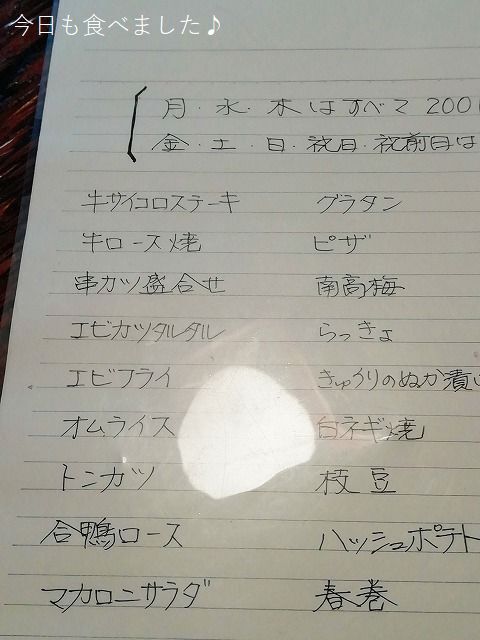 今日も食べました♪
月・水・木はすべて200
金・土・日・祝日・祝前日は
牛サイコロステーキ グラタン
牛ロース焼 ピザ
串カツ盛合せ 南高梅
エビカツタルタル らっきょ
エビフライ きゅうりのぬか漬
オムライス 白ネギ焼
トンカツ 枝豆
合鴨ロース ハッシュポテト
マカロニサラダ 春巻